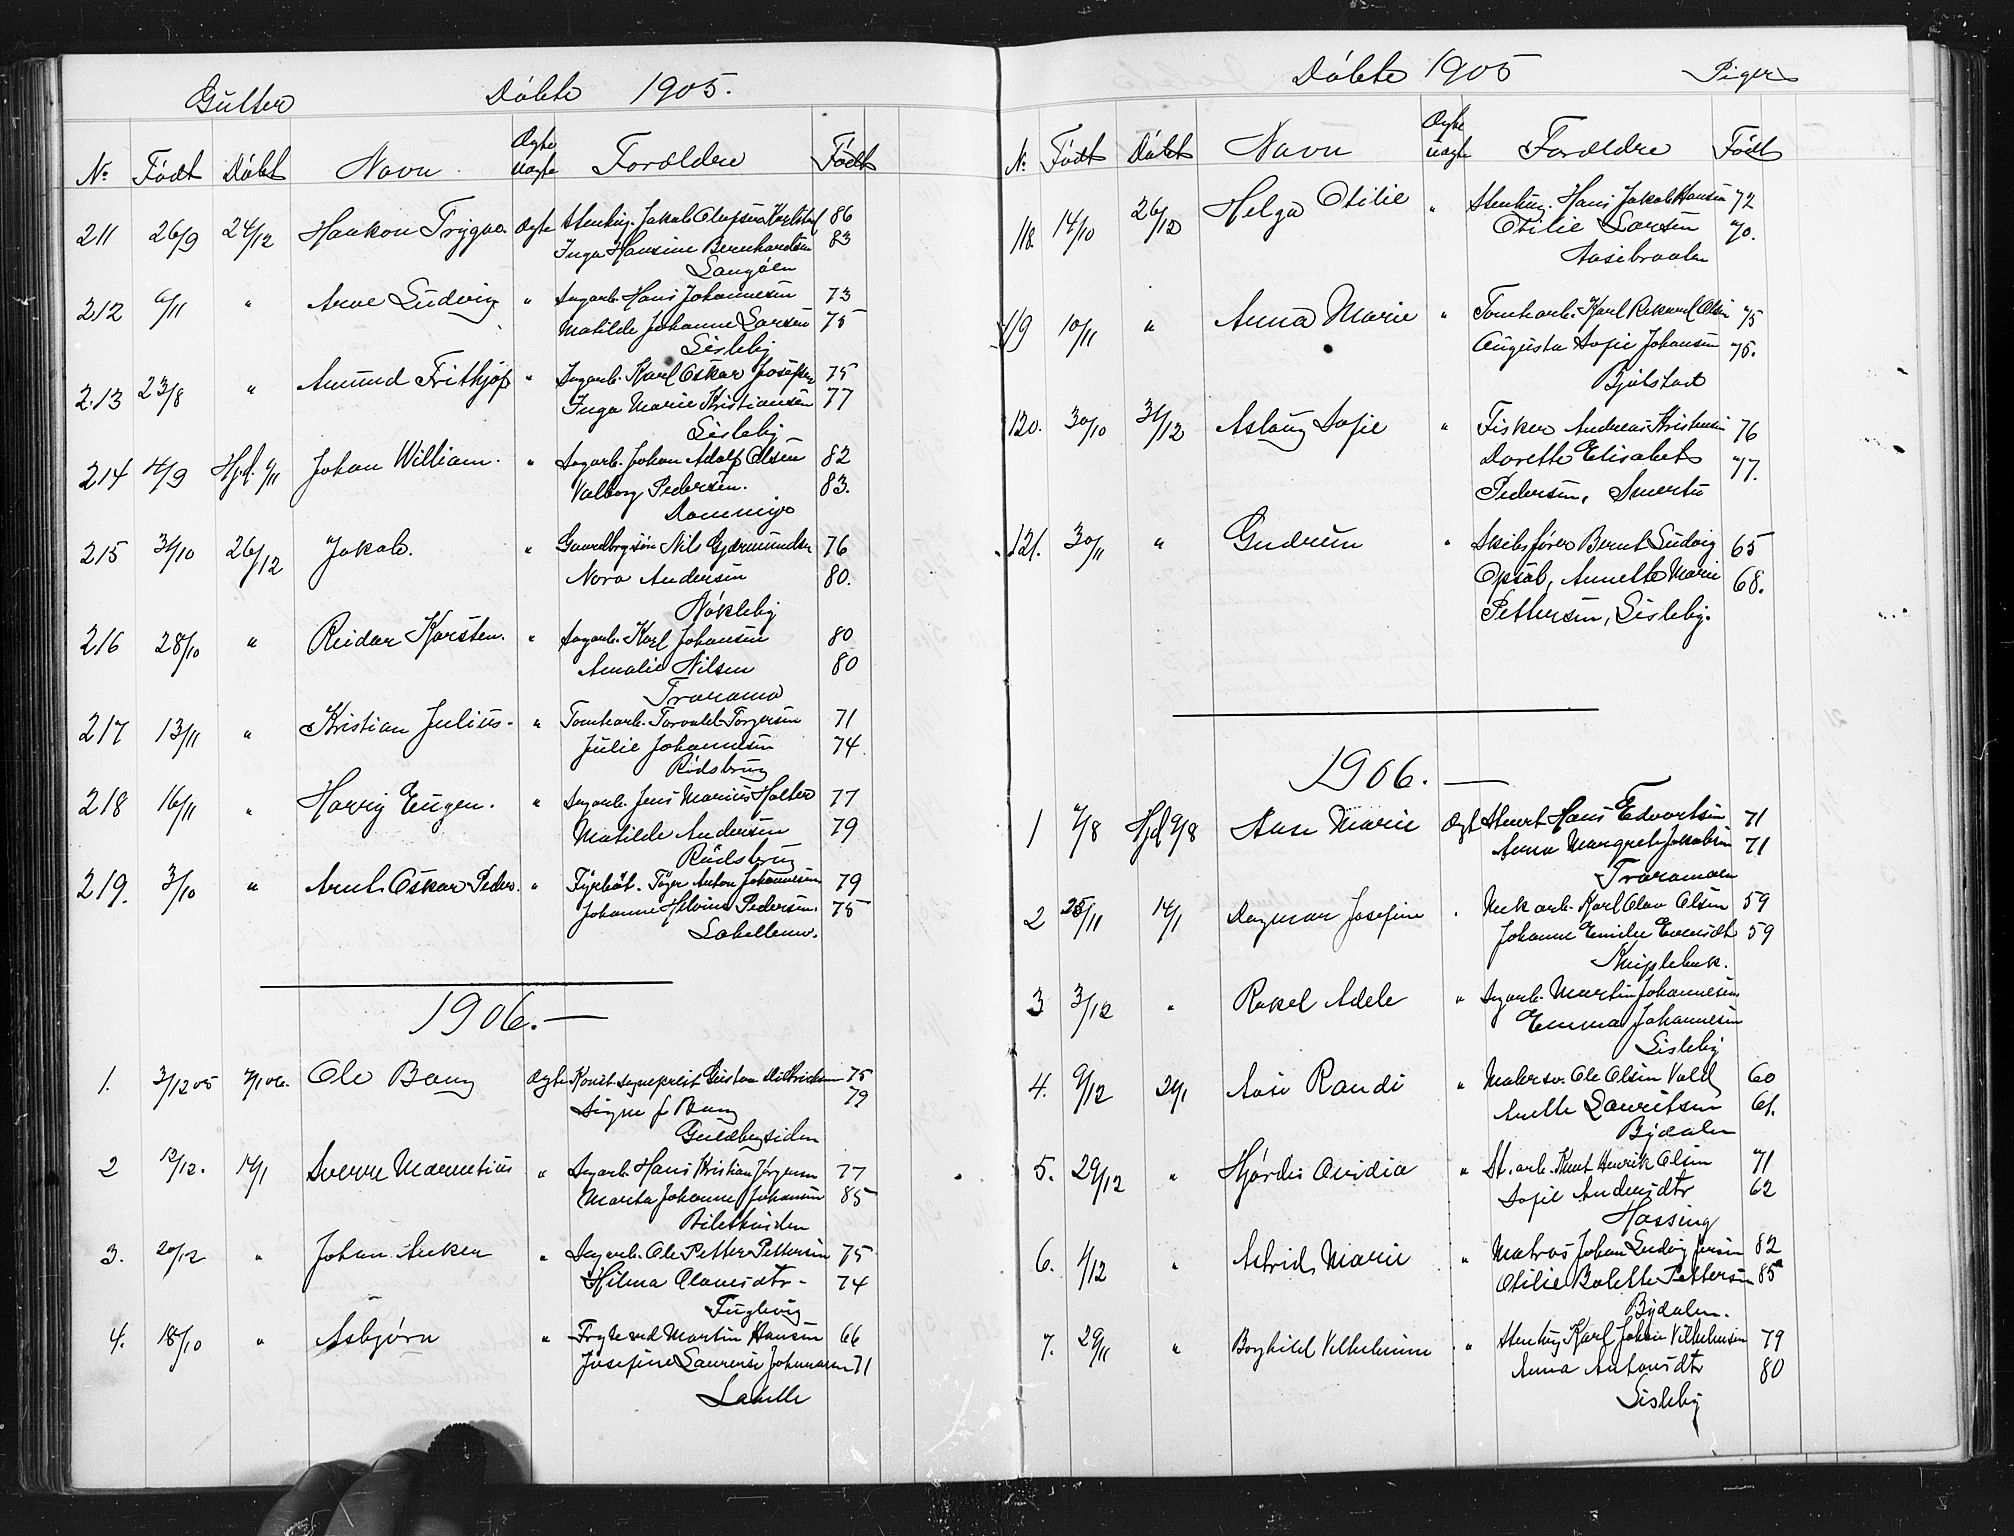 Gutter Døbte 1905.
No Født Døbt Navn Ægte Uægte Forældre Født
211 26/9 24/12 Haakon Trygve Ægte Stenhug. Jakob Olafsen Karlstad 86
Inga Hansine Bernhardsen 83
Langøen
212 6/11 " Arve Ludvig " Sagarb. Hans Johannesen 73
Matilde Johanne Larsen 75
Lisleby
213 23/8 " Amund Frithjof " Sagarb. Karl Oskar Josefsen 75
Inga Marie Kristiansen 77
Lisleby
214 14/9 Hjd. 9/11 Johan William. " Sagarb. Johan Adolf Olsen 82
Valborg Pedersen. 83.
215 31/10 26/12 Jakob. " Gaardbrgsøn Nils Gjærmundsen 76
Nora Andersen 80.
Nøkleby
216 28/10 " Reidar Karsten. " Sagarb. Karl Johansen 80
Amalie Nilsen 80
Traramo
217 13/11 " Kristian Julius. " Tomtearb. Torvald Torgersen 71
Julie Johannesen 74
Rødsbrug
218 16/11 " Harry Eugen. " Sagarb. Jens Marius Holter 77
Matilde Andersen 79
Rødsbrug
219. 3/10 " Arnt Oskar Peder. " Fyrbøt. Anton Johannesen 79
Johanne Helvine Pedersen. 75
1906.—
1. 3/12 05 7/1 06. Ole Bang Ægte Konst. sogneprest Gustav Dietrichson 75
Signe f. Bang 79
Guldbergsiden
2 12/12. 14/1 Sverre Mauritius " Sagarb. Hans Kristian Jørgensen 77
Marta Johanne Johansen 85
3. 20/12 " Johan Anker " Sagarb. Ole Petter Pettersen 75
Hilma Olavesdtr. 74
Fuglevig
4. 18/10 " Asbjørn " Martin Hansen 66
Josefine Laurense Johansen 71
Labelle
Døbte 1905 Piger
No Født Døbt Navn Ægte Uægte Forældre Født
118. 14/10 26/12 Helga Otilie " Stenhug. Hans Jakob Hansen 72
Otilie Larsen 70.
Aasebraaten
119 10/11 " Anna Marie " Tomtearb. Karl Rikard Olsen 75
Augusta Sofie Johansen 75.
Bjølstad
120. 30/10 31/12 Aslaug Sofie " Fisker Andreas Kristensen 76
Dorette Elisabet 77.
Pedersen, Smertu
121. 30/11 " Gudrun " Skibsfører Bernt Ludvig 65
Opsal, Annette Marie 68.
Pettersen, Lisleby.
1906.—
1 7/8 Hjd 9/8 Aase Marie Ægt Stuert Hans Edvartsen 71
Anna Margrete Jakobsen 71
Traramoen
2 25/11 14/1 Dagmar Josefine " Mek arb. Karl Olav Olsen 59
Johanne Emilie Evensdtr 59
Kniplebak.
3 3/12 " Rakel Adele " Sagarb. Martin Johannesen
Emma Johannesen
Lisleby
4. 9/12 21/1 Aase Randi " Malersv. Ole Olsen Vold 60
Anette Lauritsen 61.
Bydalen
5. 29/12 " Hjørdis Ovidia " St. arb. Knut Henrik Olsen 71
Sofie Andersdtr 62
Hassing
6. 1/12 " Astrid Marie " Matros Johan Ludvig Jensen 82
Otilie Bolette Pettersen 85
Bydalen.
7. 29/11 " Borghild Vilhelmine " Stenhug. Karl Johan Vilhelmsen 79
Anna Antonsdtr 80
Lisleby